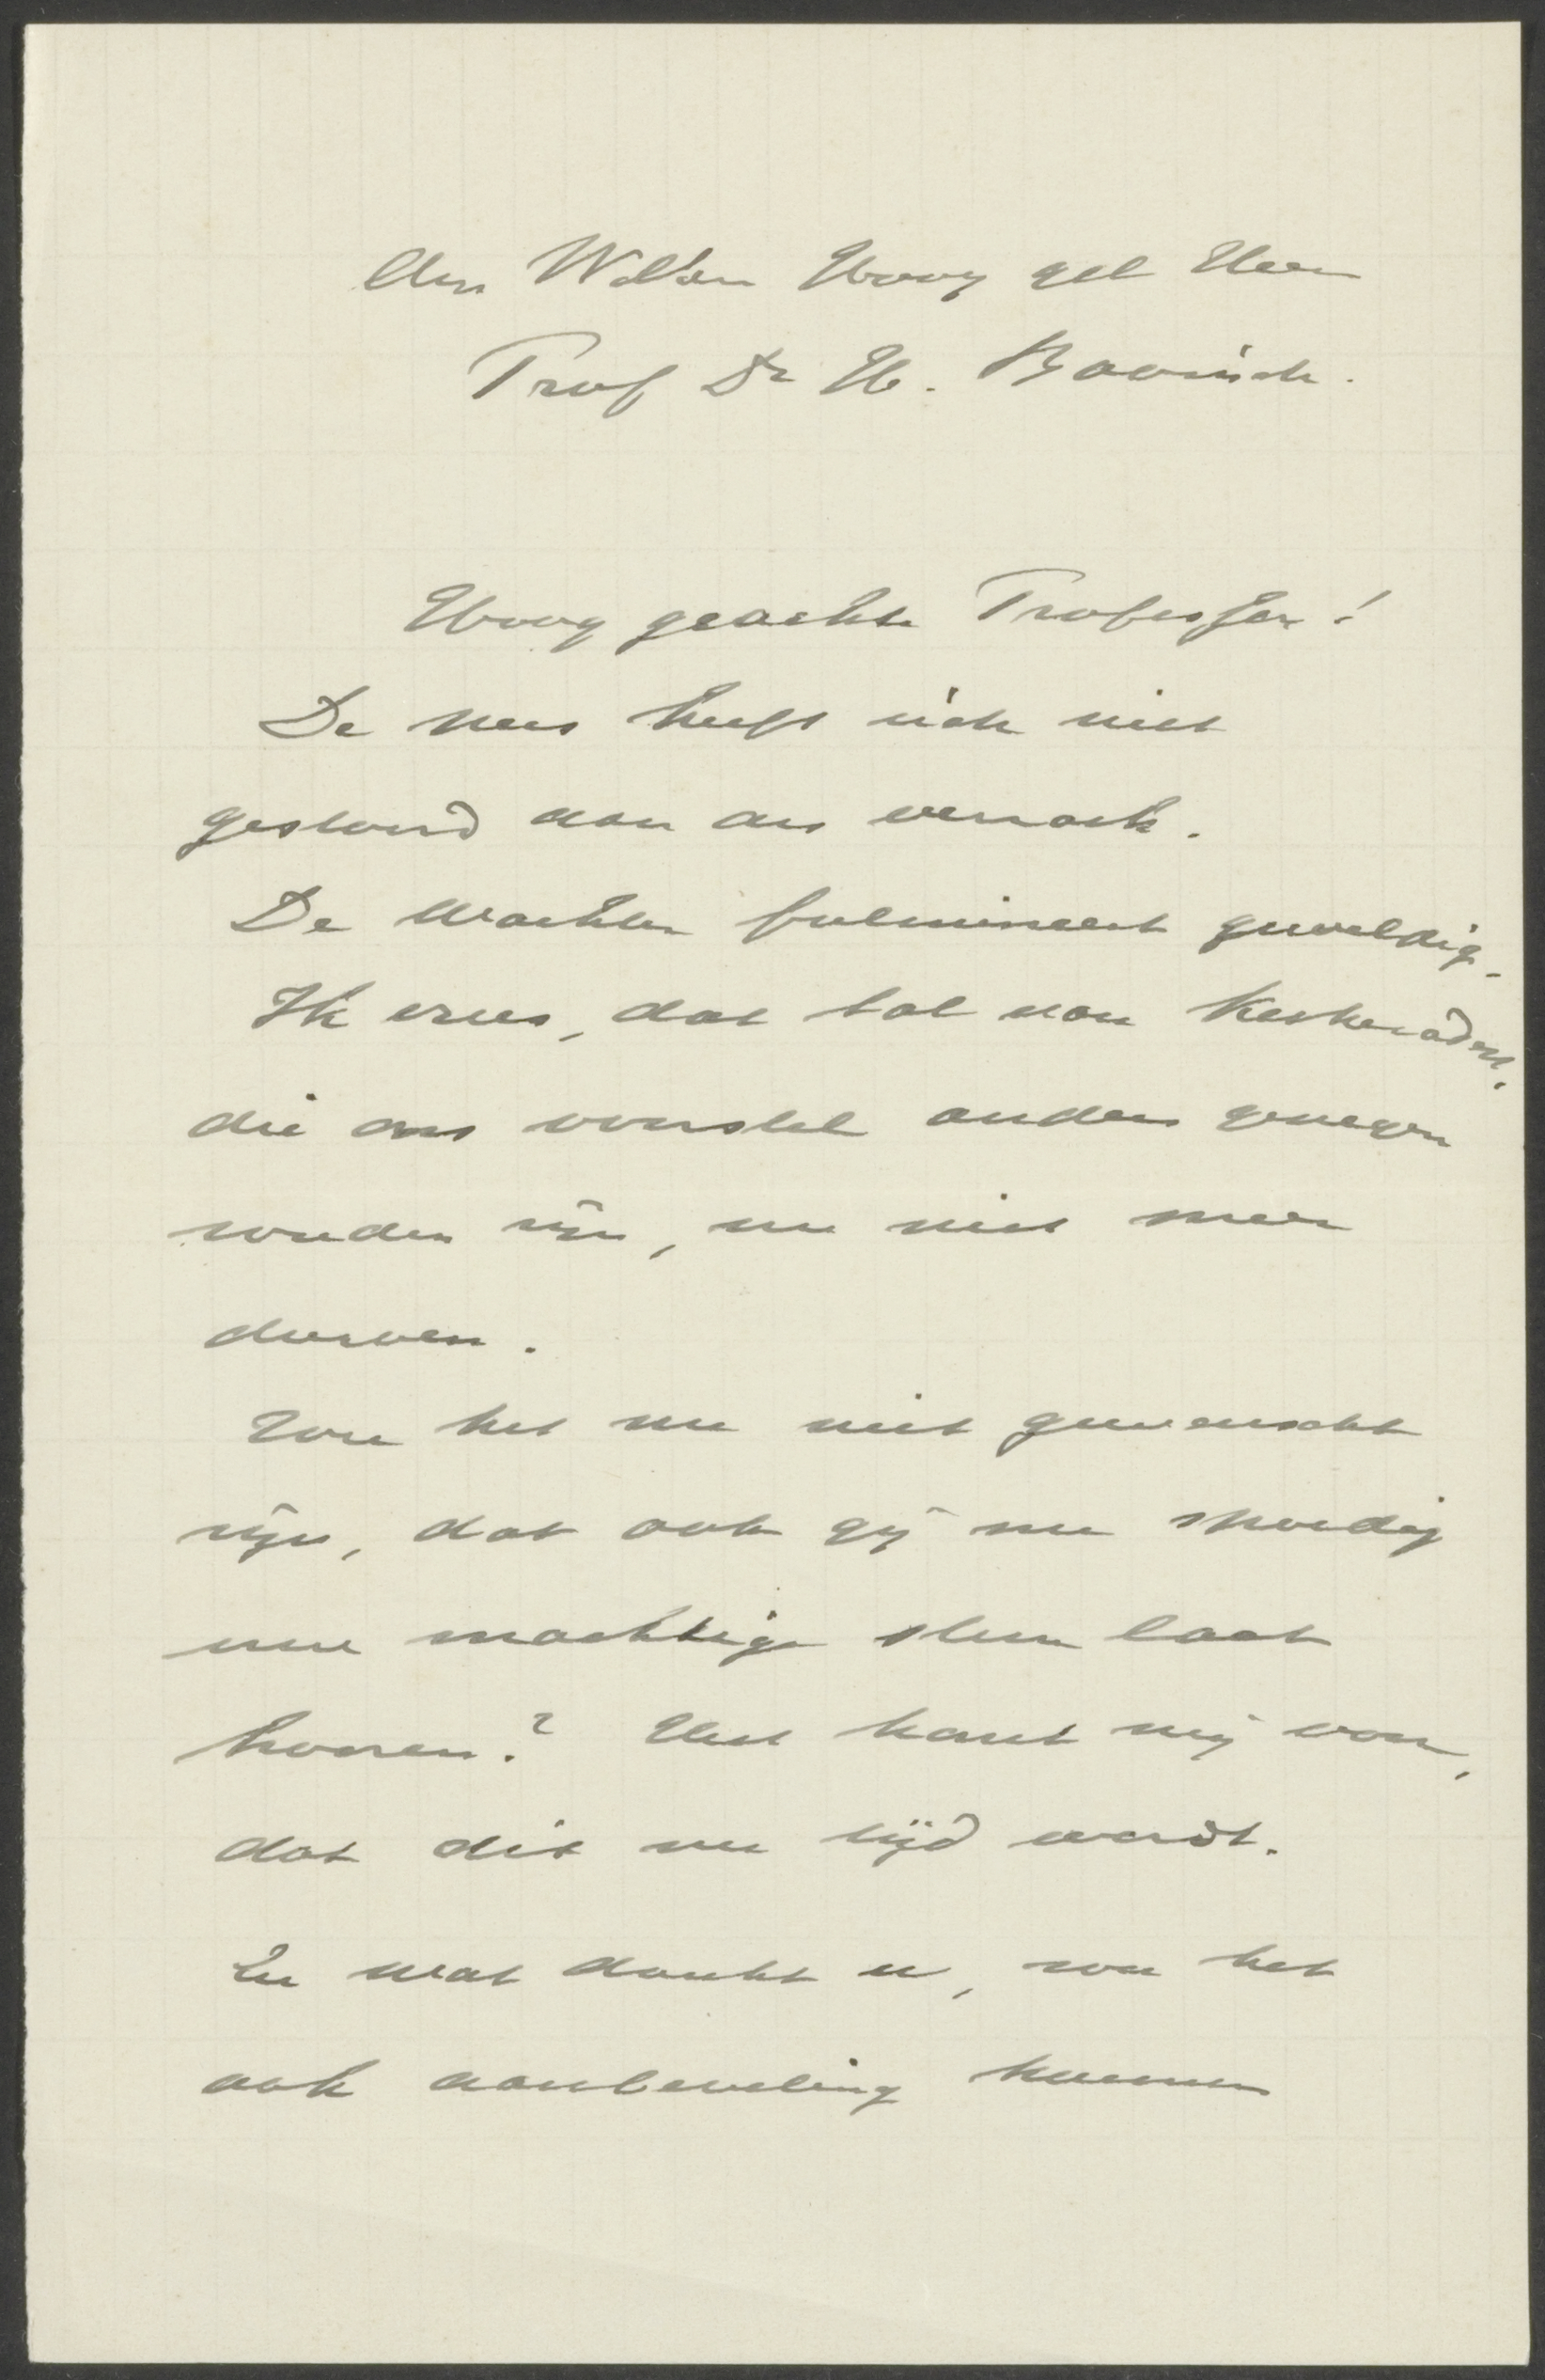 Den WelEerw Hoog gel Heer
Prof Dr H. Bavinck.
Hoog geachte Professor!
De pers heeft zich niet
gestoord aan ons verzoek.
De Wachter fulmineert geweldig.
Ik vrees, dat tal van Kerkeraden,
die ons voorstel anders genegen
zouden zijn, nu niet meer
durven.
Zou het nu niet gewenscht
zijn, dat ook gij nu spoedig
uwe machtige stem laat
hooren? Het komt mij voor,
dat dit nu tijd wordt.
En wat dunkt u, zou het
ook aanbeveling kunnen